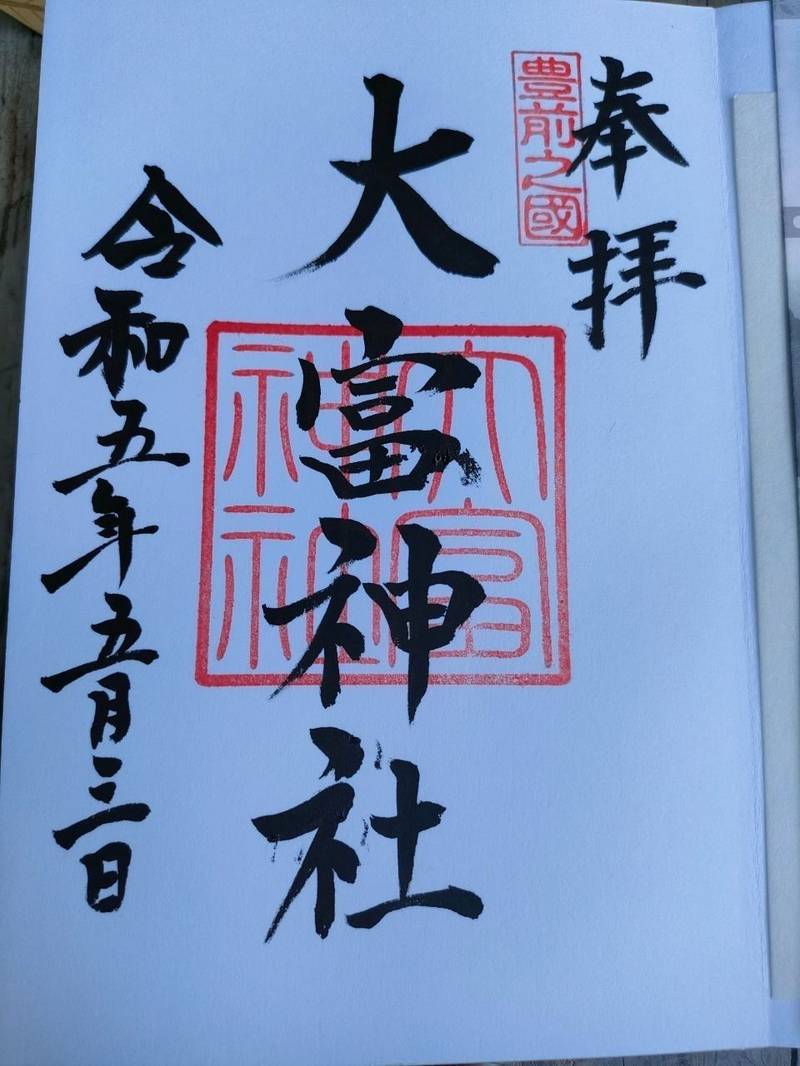 奉拝
豊前之國
大富神社
大富
神社
令和五年五月三日